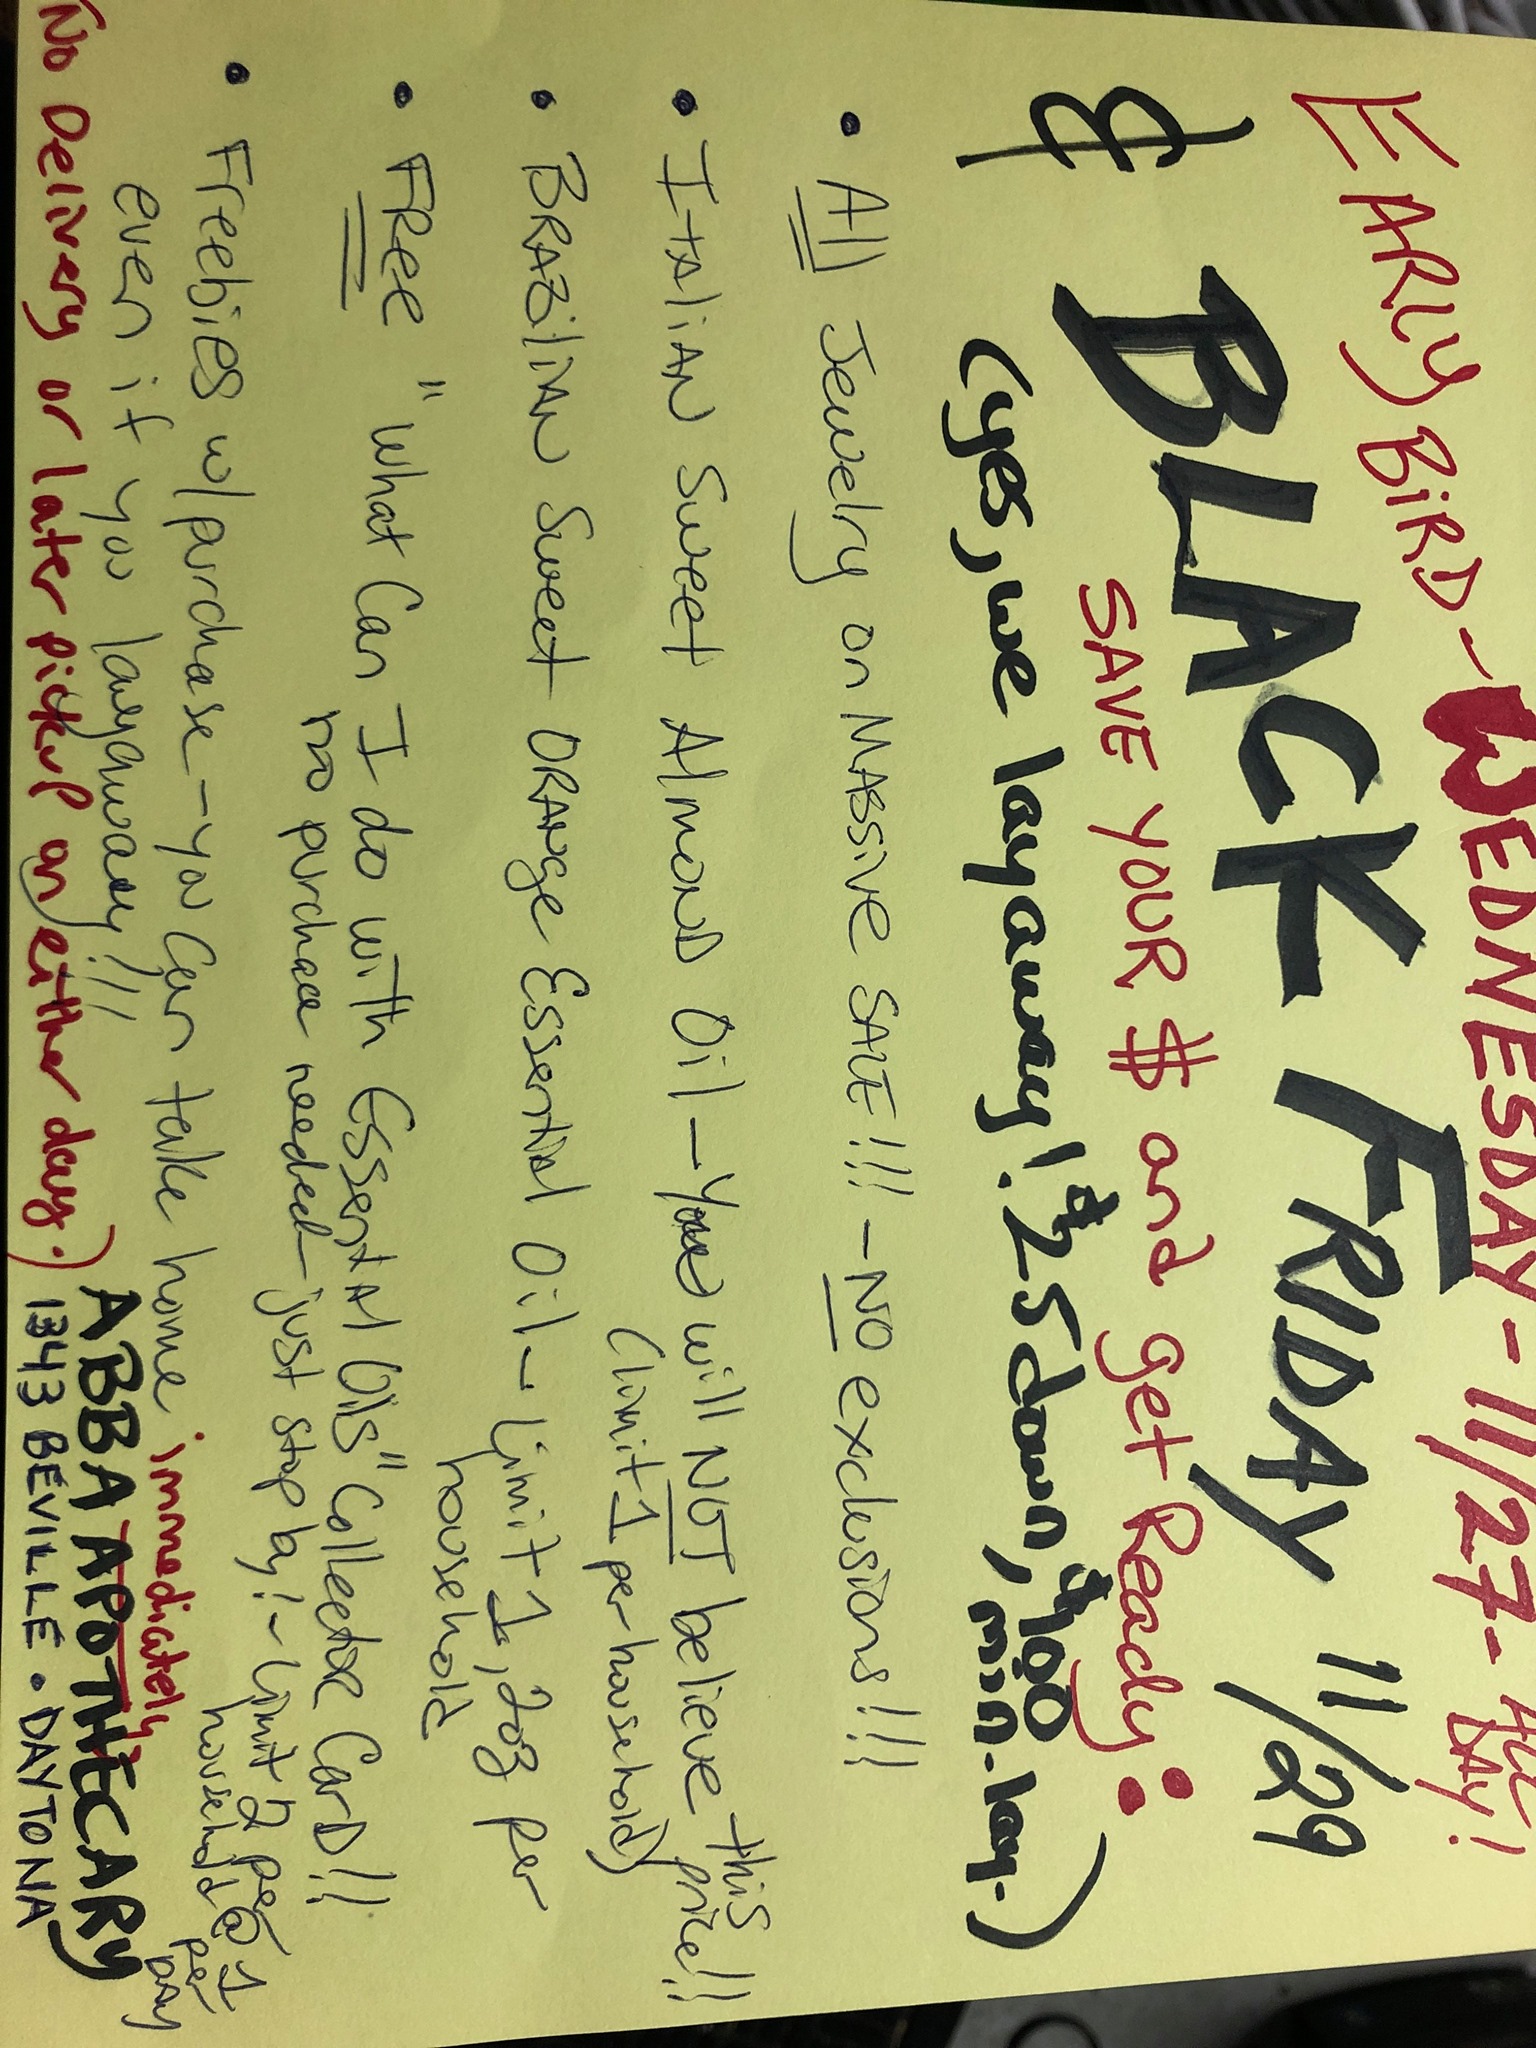 EARLY BIRD - WEDNESDAY - 11/27 - ALL DAY!
& BLACK FRIDAY 11/29
SAVE YOUR $ and get Ready:
(yes, we layaway! $25 down, $100 min. lay.)
• All Jewelry on MASSIVE SALE!!! - NO exclusions!!!
• Italian Sweet Almond Oil - You will NOT believe this price!!!
(limit 1 per household)
• BRAZiliAN Sweet ORANge Essential Oil - limit 1, 2oz per
household
• FRee "What Can I do with Essential Oils" Collector Card!!
no purchase needed - just stop by! - limit 2 per
household @ 1 per day
• Freebies w/purchase - you Can take home immediately,
even if you layaway!!!
No Delivery or later pickup on either day.)
ABBA APOTHECARY
1343 BEVILLE • DAYTONA